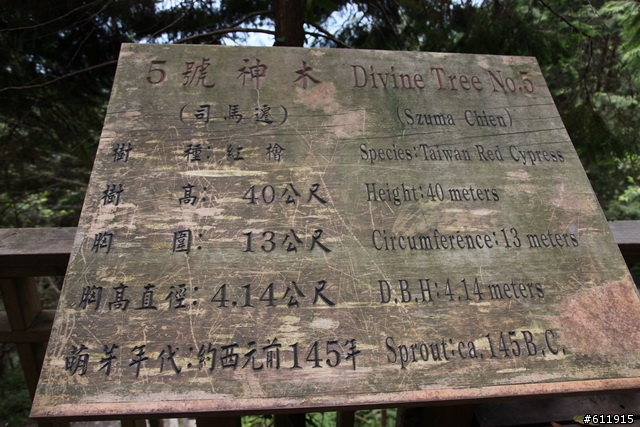 5 號 神 木 Divine Tree No.5
(司馬遷) (Szuma Chien)
樹 種: 紅 檜 Species:Taiwan Red Cypress
樹 高: 40公尺 Height:40 meters
胸 圍: 13公尺 Circumference:13 meters
胸高直徑: 4.14公尺 D.B.H:4.14 meters
萌芽年代:約西元前145年 Sprout:ca.145B.C.
#611915